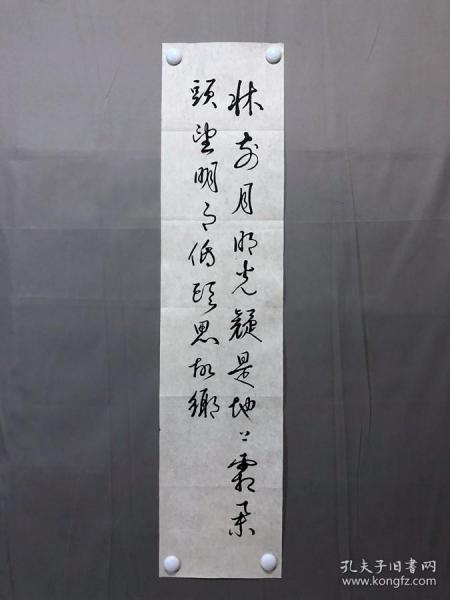 牀前月明光疑是地上霜舉
頭望明月低頭思故鄉
孔夫子旧书网
www.kongfz.com